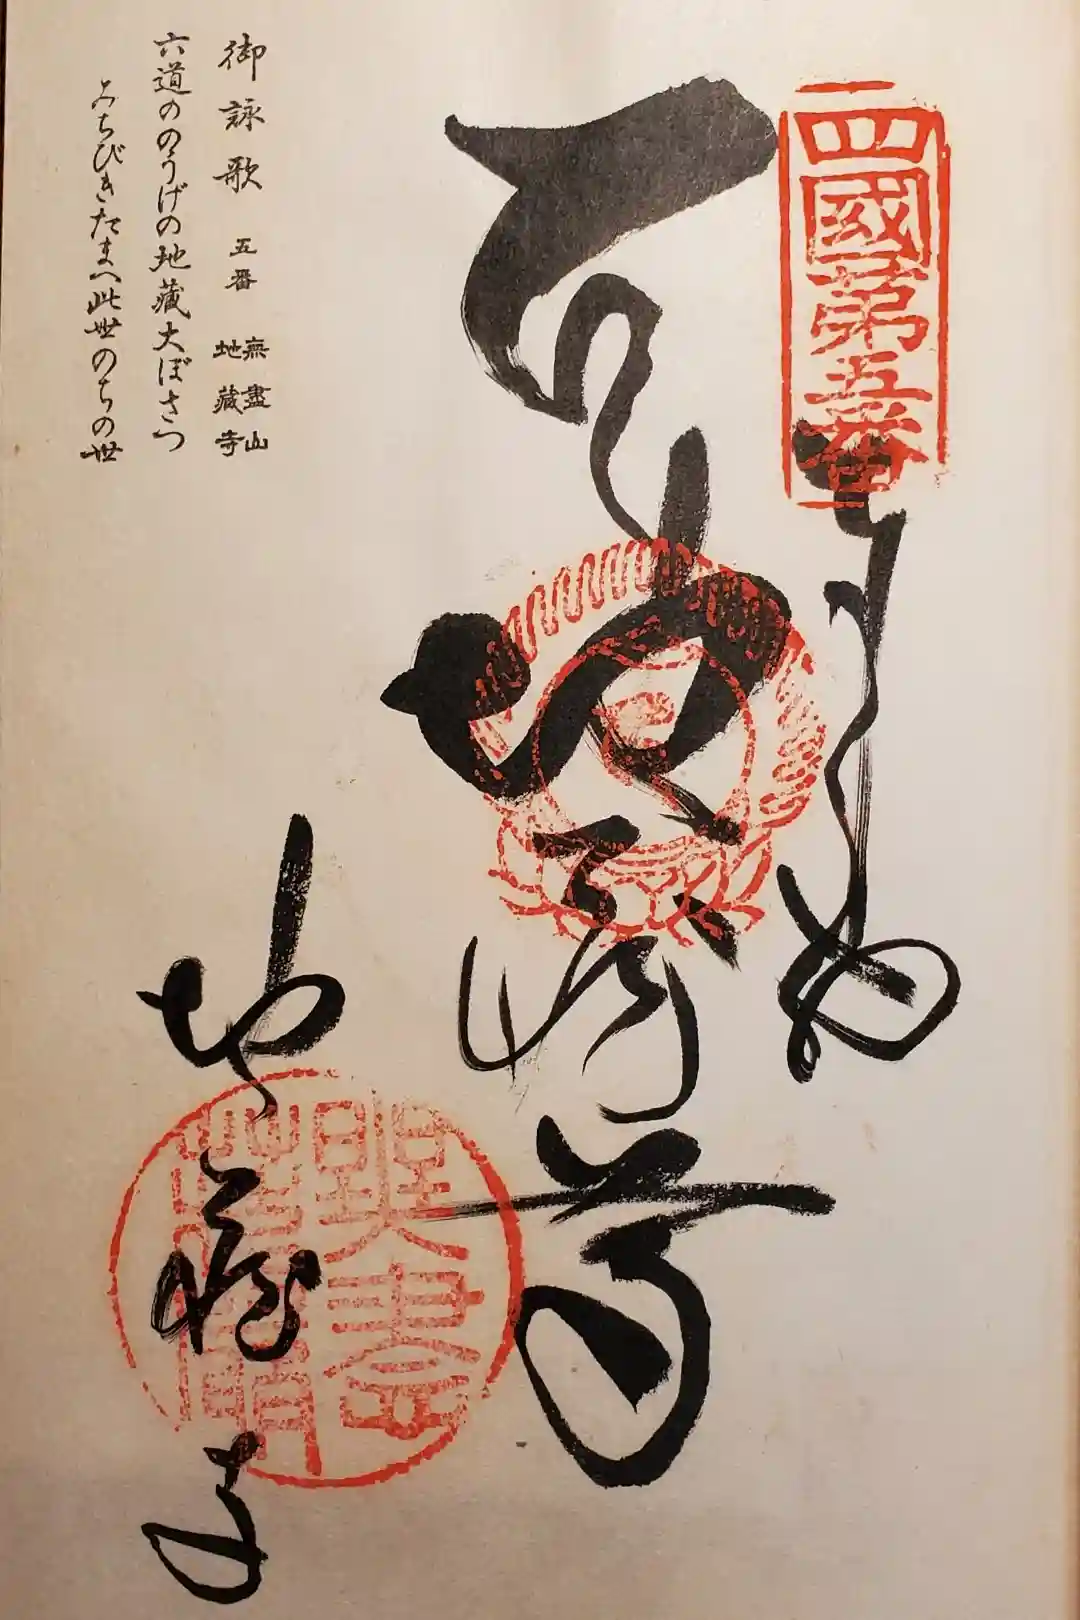 四國第五番
奉納
地蔵尊
地蔵寺
御詠歌 五番 無盡山 地藏寺
六道ののうげの地藏大ぼさつ
みちびきたまへ此世のちの世